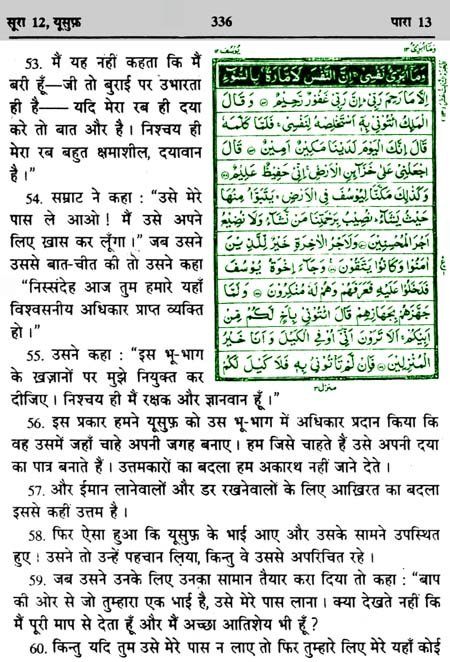 सूरा 12, यूसुफ़ 336 पारा 13
53. मैं यह नहीं कहता कि मैं
बरी हूँ—जी तो बुराई पर उभारता
ही है—— यदि मेरा रब ही दया
करे तो बात और है । निश्चय ही
मेरा रब बहुत क्षमाशील, दयावान
है ।”
54. सम्राट ने कहा : “उसे मेरे
पास ले आओ ! मैं उसे अपने
लिए ख़ास कर लूँगा ।” जब उसने
उससे बात-चीत की तो उसने कहा
“निस्संदेह आज तुम हमारे यहाँ
विश्वसनीय अधिकार प्राप्त व्यक्ति
हो ।”
55. उसने कहा : “इस भू-भाग
के ख़ज़ानों पर मुझे नियुक्त कर
दीजिए । निश्चय ही मैं रक्षक और ज्ञानवान हूँ ।”
وَمَآ اُبَرِّئُ ۱۳
يُوسُف ۱۲
وَمَآ اُبَرِّئُ نَفْسِيْ اِنَّ النَّفْسَ لَاَمَّارَةٌۢ بِالسُّوْٓءِ
اِلَّا مَا رَحِمَ رَبِّيْ اِنَّ رَبِّيْ غَفُوْرٌ رَّحِيْمٌ وَقَالَ
الْمَلِكُ ائْتُوْنِيْ بِهٖٓ اَسْتَخْلِصْهُ لِنَفْسِيْ فَلَمَّا كَلَّمَهٗ
قَالَ اِنَّكَ الْيَوْمَ لَدَيْنَا مَكِيْنٌ اَمِيْنٌ قَالَ
اجْعَلْنِيْ عَلٰى خَزَآئِنِ الْاَرْضِ اِنِّيْ حَفِيْظٌ عَلِيْمٌ
وَكَذٰلِكَ مَكَّنَّا لِيُوْسُفَ فِي الْاَرْضِ يَتَبَوَّاُ مِنْهَا
حَيْثُ يَشَآءُ نُصِيْبُ بِرَحْمَتِنَا مَنْ نَّشَآءُ وَلَا نُضِيْعُ
اَجْرَ الْمُحْسِنِيْنَ وَلَاَجْرُ الْاٰخِرَةِ خَيْرٌ لِّلَّذِيْنَ
اٰمَنُوْا وَكَانُوْا يَتَّقُوْنَ وَجَآءَ اِخْوَةُ يُوْسُفَ
فَدَخَلُوْا عَلَيْهِ فَعَرَفَهُمْ وَهُمْ لَهٗ مُنْكِرُوْنَ وَلَمَّا
جَهَّزَهُمْ بِجَهَازِهِمْ قَالَ ائْتُوْنِيْ بِاَخٍ لَّكُمْ مِّنْ
اَبِيْكُمْ اَلَا تَرَوْنَ اَنِّيْٓ اُوْفِي الْكَيْلَ وَاَنَا خَيْرُ
الْمُنْزِلِيْنَ فَاِنْ لَّمْ تَاْتُوْنِيْ بِهٖ فَلَا كَيْلَ لَكُمْ
منزل ۳
56. इस प्रकार हमने यूसुफ़ को उस भू-भाग में अधिकार प्रदान किया कि
वह उसमें जहाँ चाहे अपनी जगह बनाए । हम जिसे चाहते हैं उसे अपनी दया
का पात्र बनाते हैं । उत्तमकारों का बदला हम अकारथ नहीं जाने देते ।
57. और ईमान लानेवालों और डर रखनेवालों के लिए आख़िरत का बदला
इससे कहीं उत्तम है ।
58. फिर ऐसा हुआ कि यूसुफ़ के भाई आए और उसके सामने उपस्थित
हुए । उसने तो उन्हें पहचान लिया, किन्तु वे उससे अपरिचित रहे ।
59. जब उसने उनके लिए उनका सामान तैयार करा दिया तो कहा : “बाप
की ओर से जो तुम्हारा एक भाई है, उसे मेरे पास लाना । क्या देखते नहीं कि
मैं पूरी माप से देता हूँ और मैं अच्छा आतिशेय भी हूँ ?
60. किन्तु यदि तुम उसे मेरे पास न लाए तो फिर तुम्हारे लिए मेरे यहाँ कोई